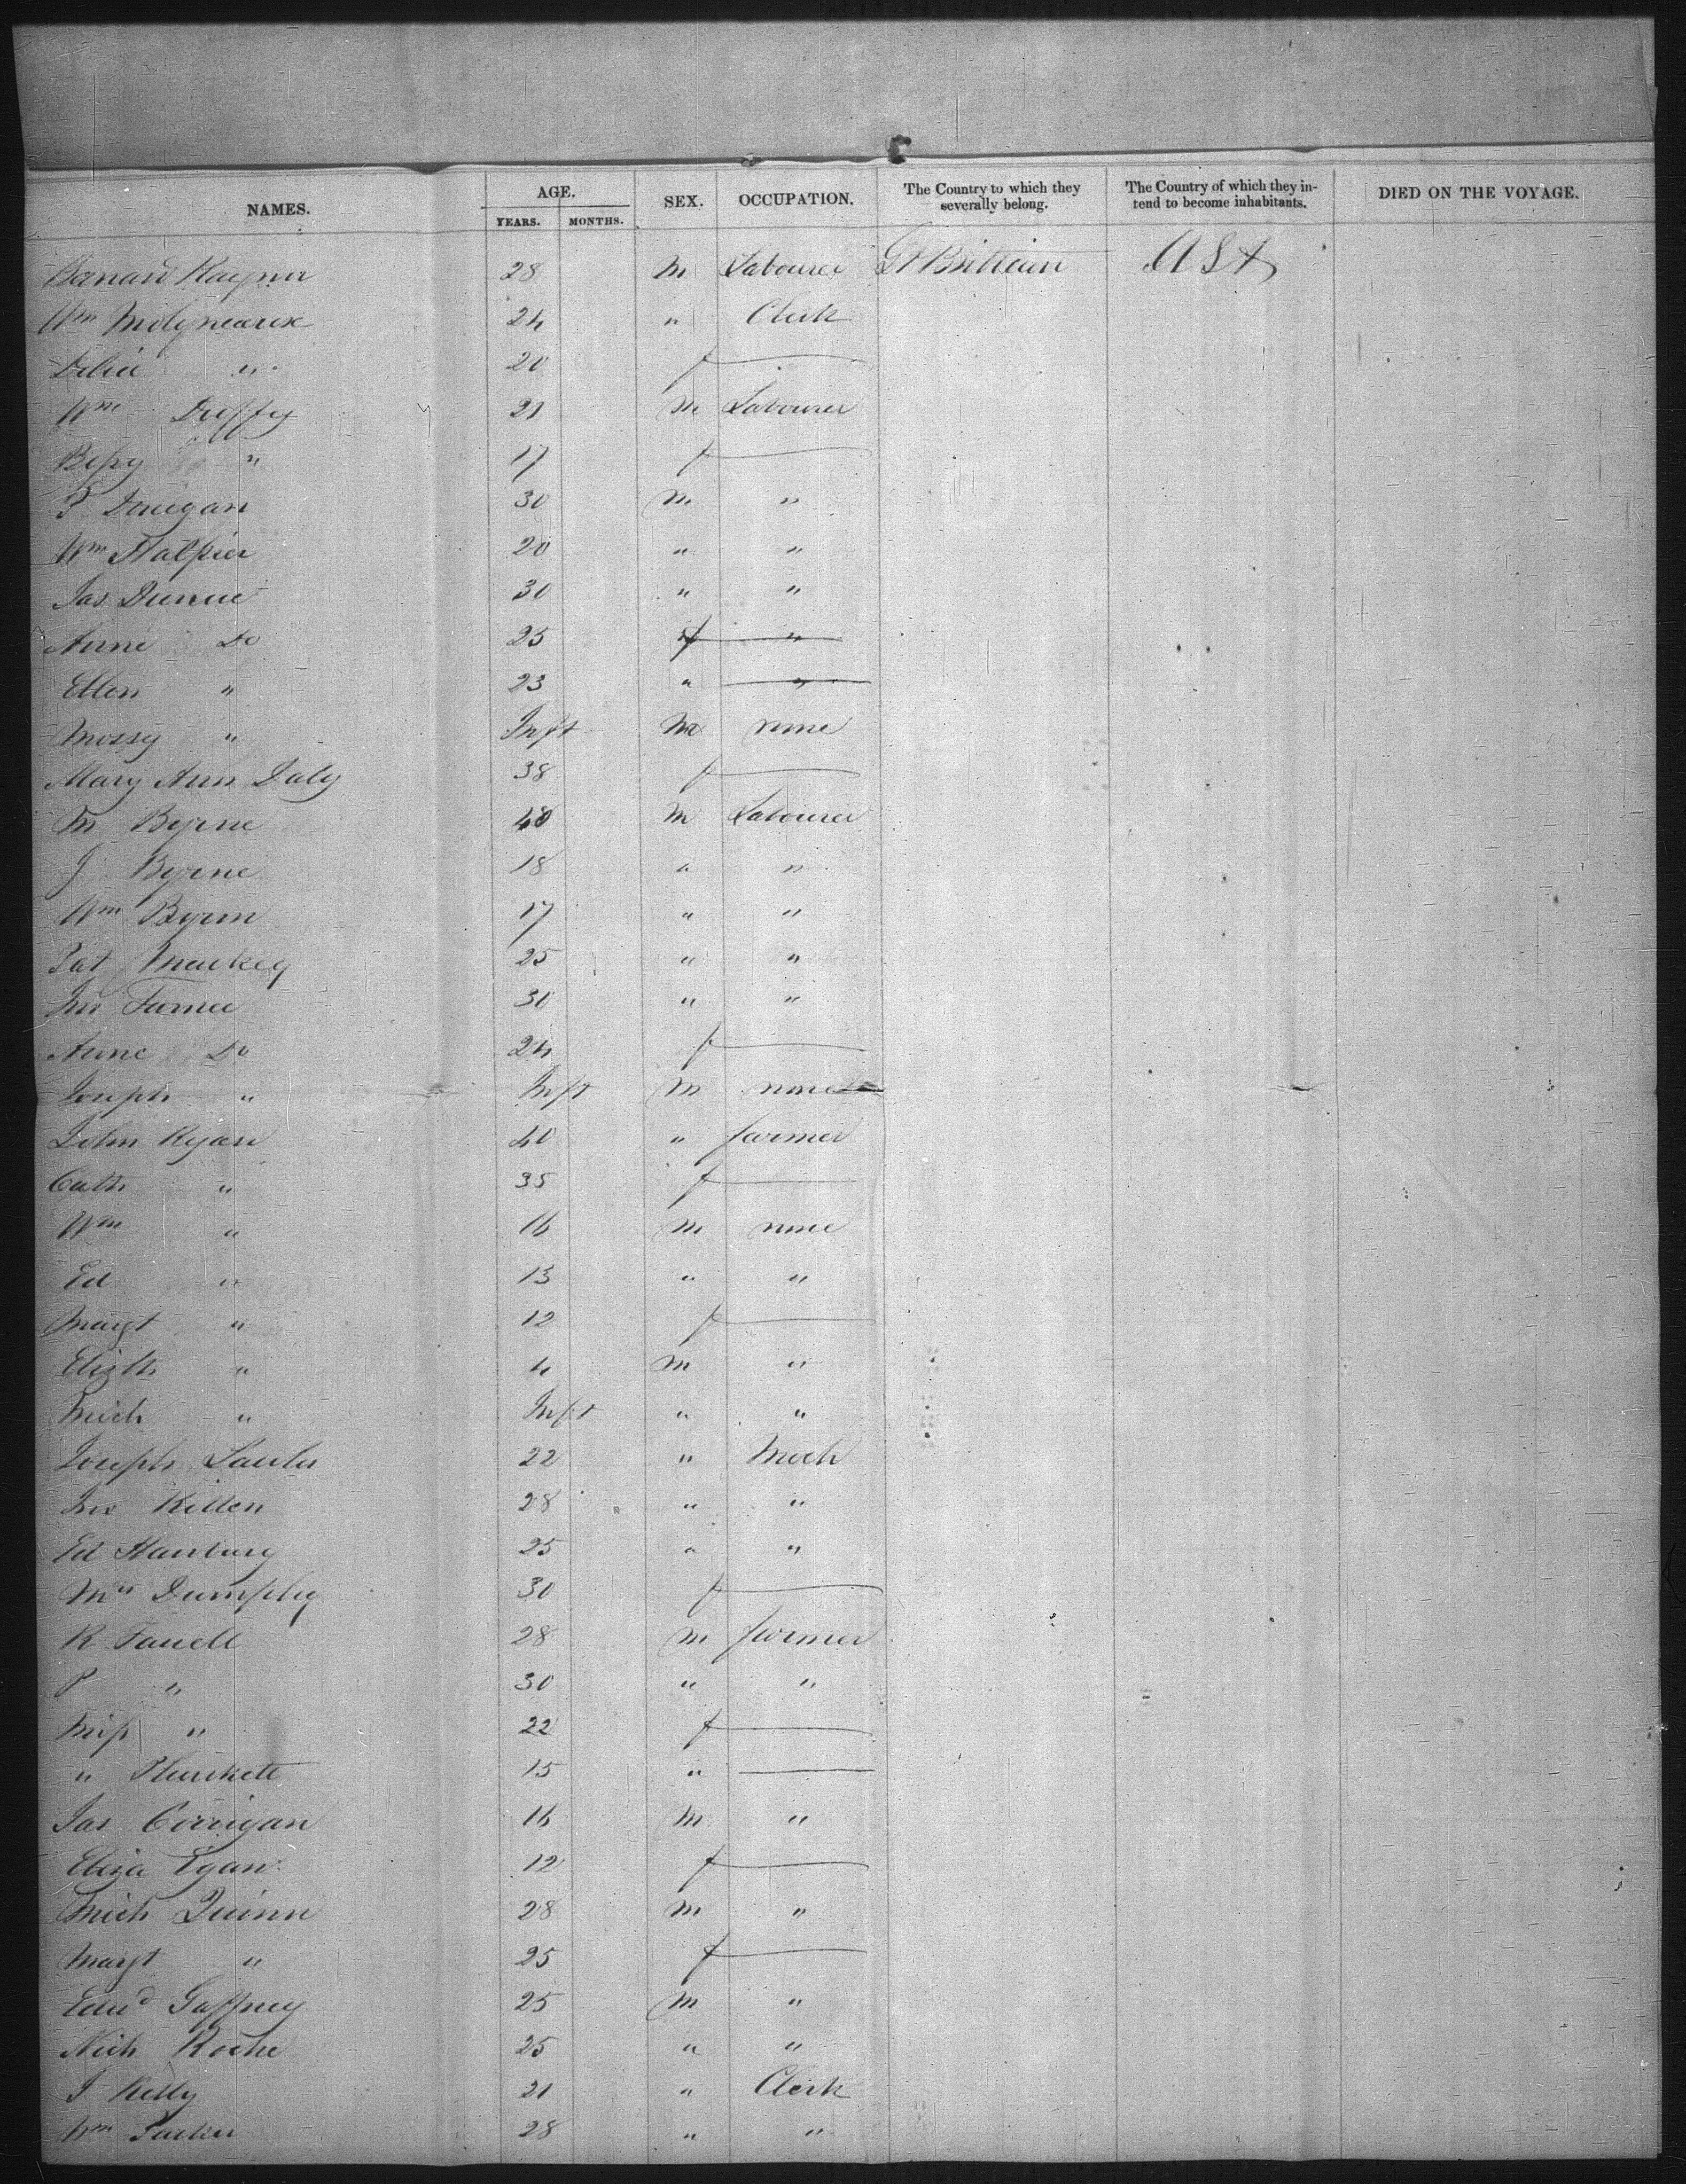 NAMES. AGE. SEX. OCCUPATION. The Country to which they severally belong. The Country of which they intend to become inhabitants. DIED ON THE VOYAGE.
YEARS. MONTHS.
Bernard 28 M Labourer Gt Brittian USA
Wm Molyneaux 24 " Clerk
Delia " 20 f
Wm Duffy 21 M Labourer
Bessy " 17 f
P 30 M "
Wm Halpier 20 " "
Jas Dunne 30 " "
Anne Do 25 f "
Ellen " 23 " "
Mossy " Inft M none
Mary Ann Daly 38 f
M Byrne 40 M Labourer
J Byrne 18 " "
Wm Byrne 17 " "
Pat Mackey 25 " "
Jno 30 " "
Anne Do 24 f
Joseph " Inft M none
John Ryan 40 " farmer
Cath " 35 f
Wm " 16 M none
Ed " 13 " "
Margt " 12 f
Elizth " 4 M "
Mich " Inft " "
Joseph 22 " Mech
Jno Killen 28 " "
Ed Hanbury 25 " "
Mrs Dumphy 30 f
R Farrell 28 M farmer
P " 30 " "
Miss " 22 f
" Plunkett 15 "
Jas Corrigan 16 M "
Eliza Egan 12 f
Mich Quinn 28 M "
Margt " 25 f
Edwd Gaffney 25 M "
Nich Roche 25 " "
J Kelly 21 " Clerk
Wm 28 " "